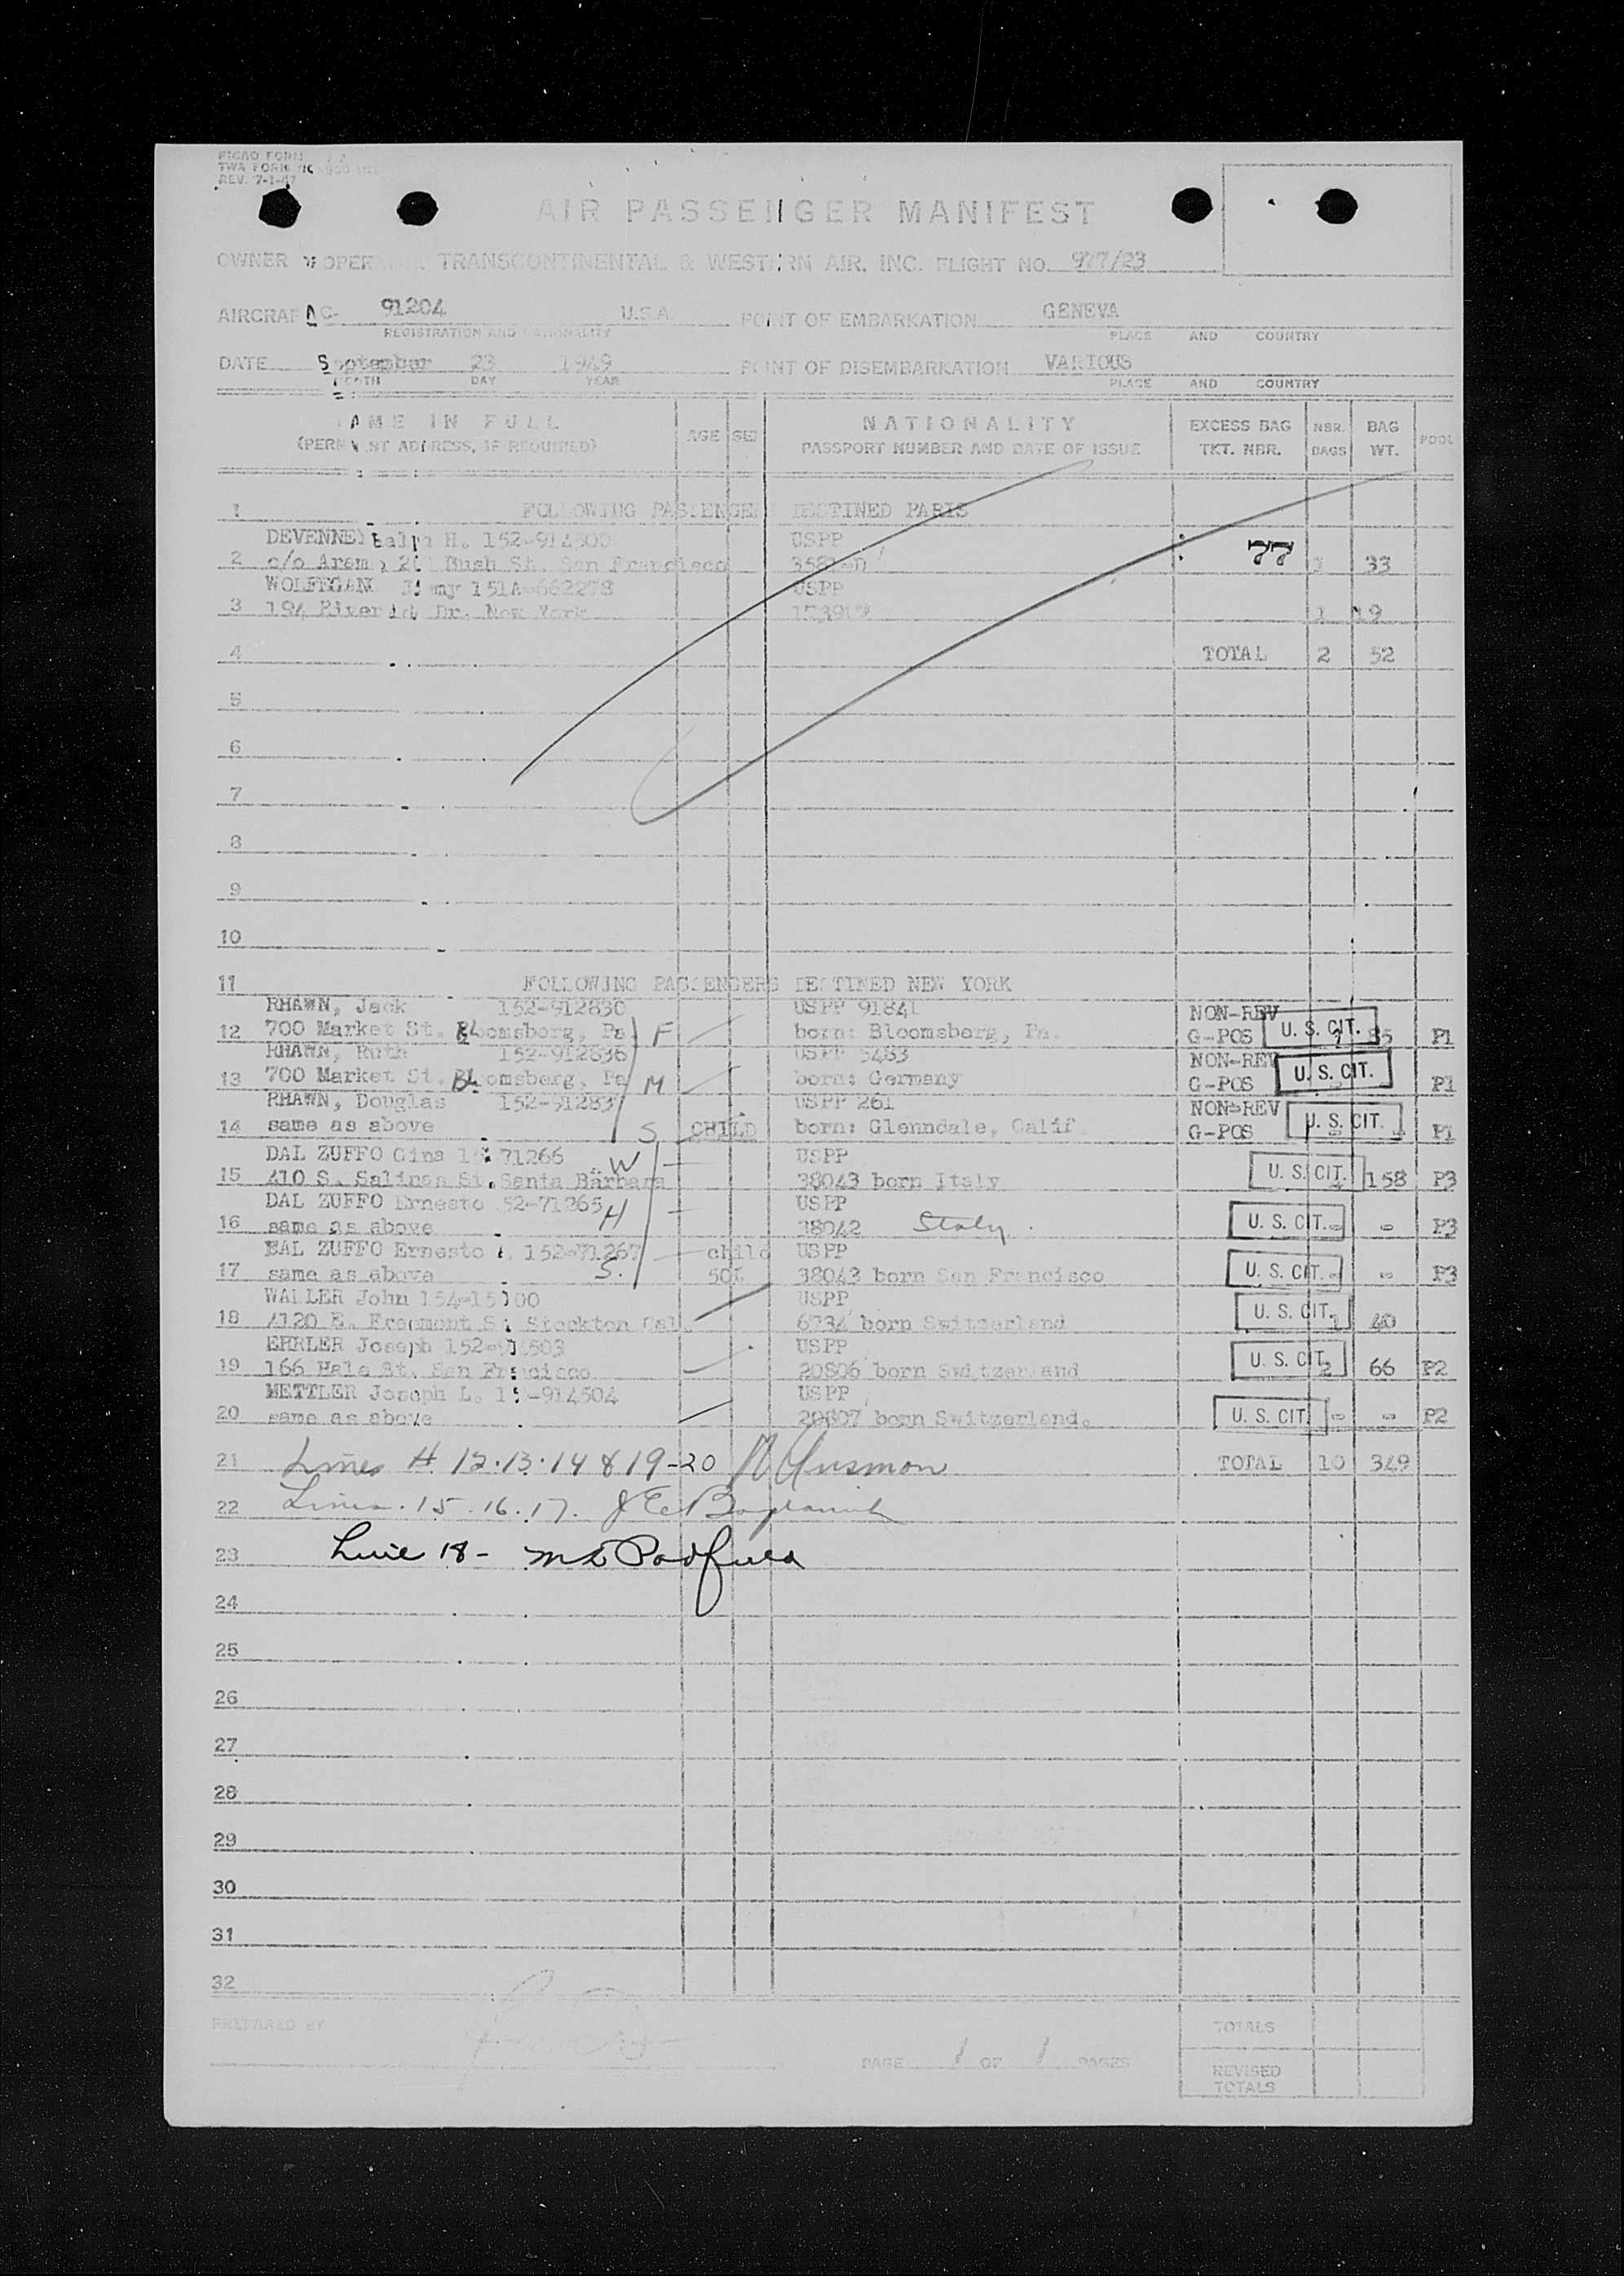 PICAO FORM
TWA FORM
REV. 7-1-47
AIR PASSENGER MANIFEST
OWNER OR OPERATOR TRANSCONTINENTAL & WESTERN AIR, INC. FLIGHT NO. 977/23
AIRCRAFT NC- 91204 U.S.A. POINT OF EMBARKATION GENEVA
REGISTRATION AND NATIONALITY PLACE AND COUNTRY
DATE September 23 1949 POINT OF DISEMBARKATION VARIOUS
MONTH DAY YEAR PLACE AND COUNTRY
NAME IN FULL AGE SEX NATIONALITY EXCESS BAG NBR. BAG POOL
(PERMANENT ADDRESS, IF REQUIRED) PASSPORT NUMBER AND DATE OF ISSUE TKT. NBR. BAGS WT.
1 FOLLOWING PASSENGERS DESTINED PARIS
Ralph H. 152-914500 USPP
2 c/o Bush St. San Francisco 77 33
151A-662278 USPP
3 194 Dr. New York 1 19
4 TOTAL 2 52
5
6
7
8
9
10
11 FOLLOWING PASSENGERS DESTINED NEW YORK
RHAWN, Jack 152-912830 USPP 91841 NON-REV
12 700 Market St. Bloomsberg, Pa. F born: Bloomsberg, Pa. G-POS U. S. CIT. 85 P1
RHAWN, Ruth 152-912836 USPP 5483 NON-REV
13 700 Market St. Bloomsberg, Pa M born: Germany G-POS U. S. CIT. P1
RHAWN, Douglas 152-912837 USPP 261 NON-REV
14 same as above S CHILD born: Glenndale, Calif. G-POS U. S. CIT. - P1
DAL ZUFFO Gina 71266 W USPP
15 410 S. Salinas St. Santa Barbara 38043 born Italy U. S. CIT. 158 P3
DAL ZUFFO Ernesto 152-71265 H USPP
16 same as above 38042 Italy. U. S. CIT. - - P3
DAL ZUFFO Ernesto 152-71267 child USPP
17 same as above S. 50% 38043 born San Francisco U. S. CIT. - - P3
WALLER John USPP
18 4120 E. Freemont St Stockton Cal. 6734 born Switzerland U. S. CIT. 1 40
EHRLER Joseph 152-914503 USPP
19 166 Hale St. San Francisco 20806 born Switzerland U. S. CIT. 2 66 P2
METTLER Joseph L. 152-914504 USPP
20 same as above 20807 born Switzerland. U. S. CIT. - - P2
21 Lines # 12.13.14 & 19-20 TOTAL 10 349
22 Lines. 15.16.17.
23 Line 18 -
24
25
26
27
28
29
30
31
32
PREPARED BY TOTALS
PAGE 1 OF 1 PAGES
REVISED
TOTALS